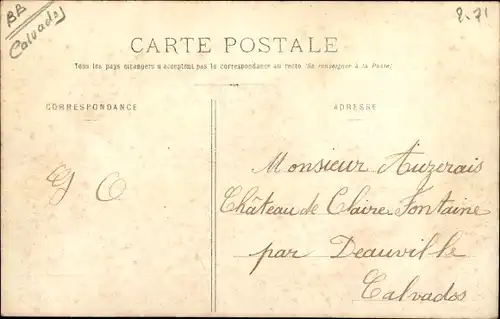 BB
Calvados
2.71
CARTE POSTALE
Tous les pays étrangers n'acceptent pas la correspondance au recto (Se renseigner à la Poste)
CORRESPONDANCE
ADRESSE
Monsieur Auzerais
Château de Claire Fontaine
par Deauville
Calvados